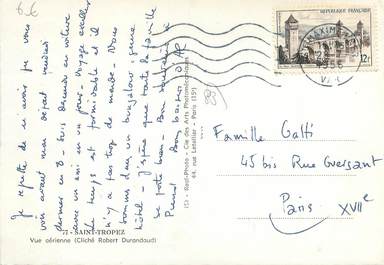 6 €
Je regrette de n'avoir pu vous
voir avant mon départ mardi
dernier en 8 - Suis descendu en voiture
avec un ami en un jour - Voyage excellent
le temps est formidable et il
n'y a pas trop de monde - Nous
sommes dans un bungalow, genre
hôtel - J'espère que toute la famille
se porte bien - Bon souvenir à
Bons baisers
RÉPUBLIQUE FRANÇAISE
12F
VAR
Famille Gatti
45 bis Rue Guersant
Paris XVIIe
Réal-Photo - Cie des Arts Photomécaniques
44, rue Letellier - Paris (15e)
SAINT-TROPEZ
Vue aérienne (Cliché Robert Durandaud)